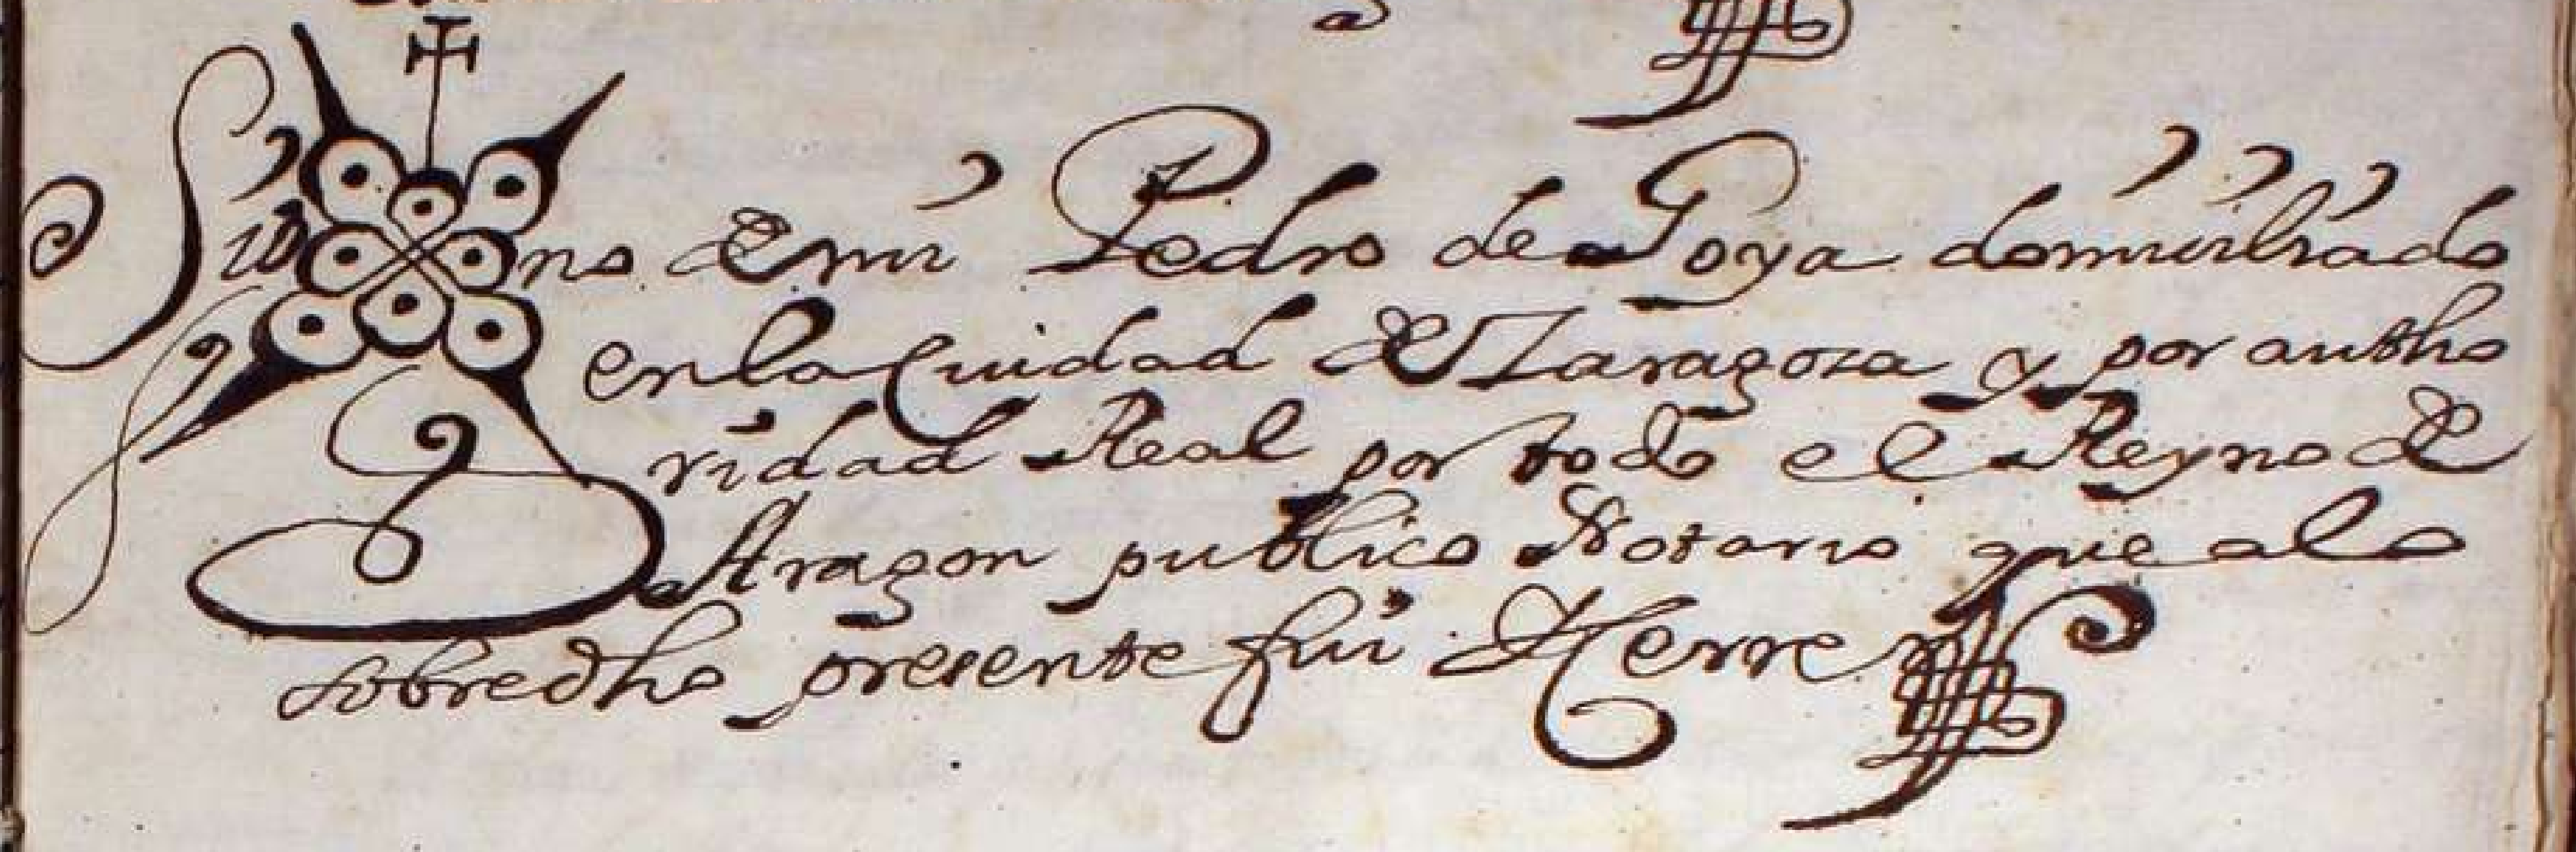 Sig no de mi Pedro de Goya domiciliado
en la Ciudad de Zaragoza y por autho
ridad Real por todo el Reyno de
Aragon publico Notario que a lo
sobredho presente fui Et Cerre